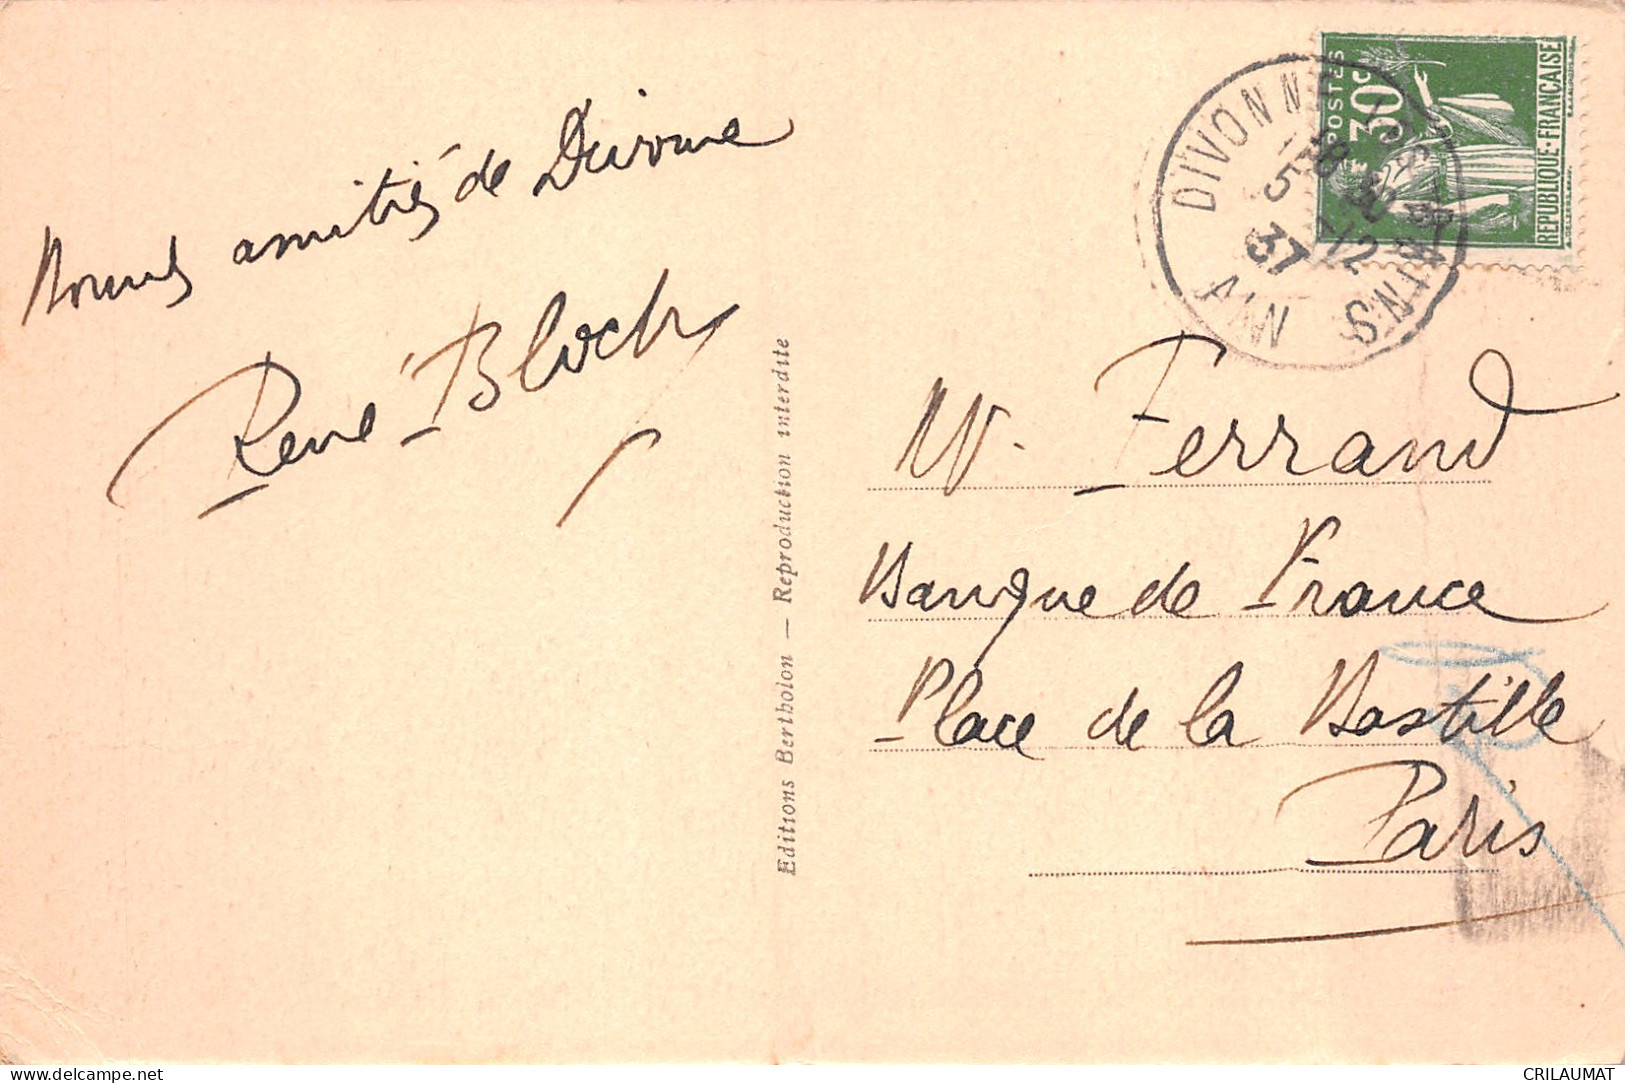 Bonnes amitiés de Divonne
René Bloch
Editions Bertholon — Reproduction interdite
POSTES
30c
REPUBLIQUE-FRANÇAISE
DIVONNE-LES-BAINS
18 30
5 -12
37
AIN
M. Ferrand
Banque de France
Place de la Bastille
Paris
delcampe.net
CRILAUMAT